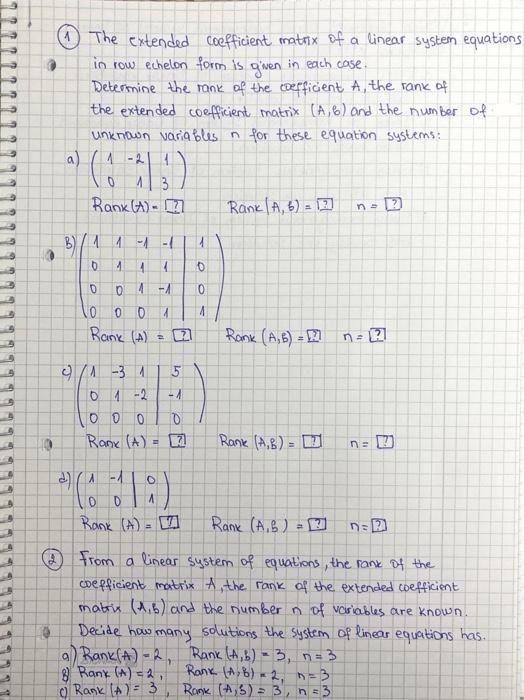 ① The extended coefficient matrix of a linear system equations
in row echelon form is given in each case.
Determine the rank of the coefficient A, the rank of
the extended coefficient matrix (A,b) and the number of
unknown variables n for these equation systems:
a) ( 1 -2 | 1 )
( 0 1 | 3 )
Rank(A) = [?] Rank(A,b) = [?] n = [?]
b) ( 1 1 -1 -1 | 1 )
( 0 1 1 1 | 0 )
( 0 0 1 -1 | 0 )
( 0 0 0 1 | 1 )
Rank (A) = [?] Rank (A,b) = [?] n = [?]
c) ( 1 -3 1 | 5 )
( 0 1 -2 | -1 )
( 0 0 0 | 0 )
Rank (A) = [?] Rank (A,b) = [?] n = [?]
d) ( 1 -1 | 0 )
( 0 0 | 1 )
Rank (A) = [?] Rank (A,b) = [?] n = [?]
② From a linear system of equations, the rank of the
coefficient matrix A, the rank of the extended coefficient
matrix (A,b) and the number n of variables are known.
Decide how many solutions the system of linear equations has.
a) Rank(A) = 2, Rank(A,b) = 3, n = 3
b) Rank (A) = 2, Rank (A,b) = 2, n = 3
c) Rank (A) = 3, Rank (A,b) = 3, n = 3